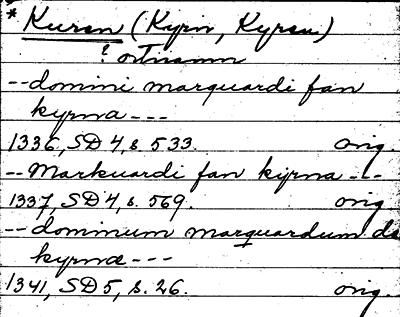 * Kuren (Kyrn, Kyreu)
? ortnamn
-- domini marquardi fan
kyrna ---
1336, SD 4, s. 533. orig.
-- Markuardi fan kyrna ---
1337, SD 4, s. 569. orig
-- dominum marquardum de
kyrnæ ---
1341, SD 5, s. 26. orig.